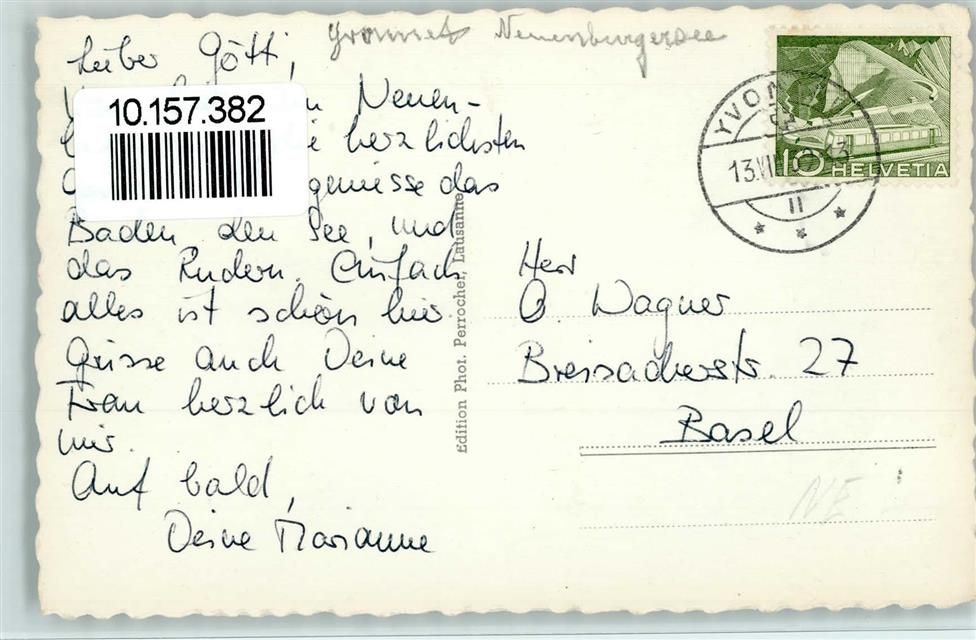 Yvonnet Neuenburgersee
Lieber Götti,
Neuen-
herzlichsten
geniesse das
Baden, den See, und
das Rudern. Einfach
alles ist schön hier.
Grüsse auch Deine
Frau herzlich von
mir.
Auf bald,
Deine Marianne
10.157.382
Edition Phot. Perrochet, Lausanne
YVONAND
13.VII
II
10 HELVETIA
Herr
O. Wagner
Breisacherstr. 27
Basel
NE